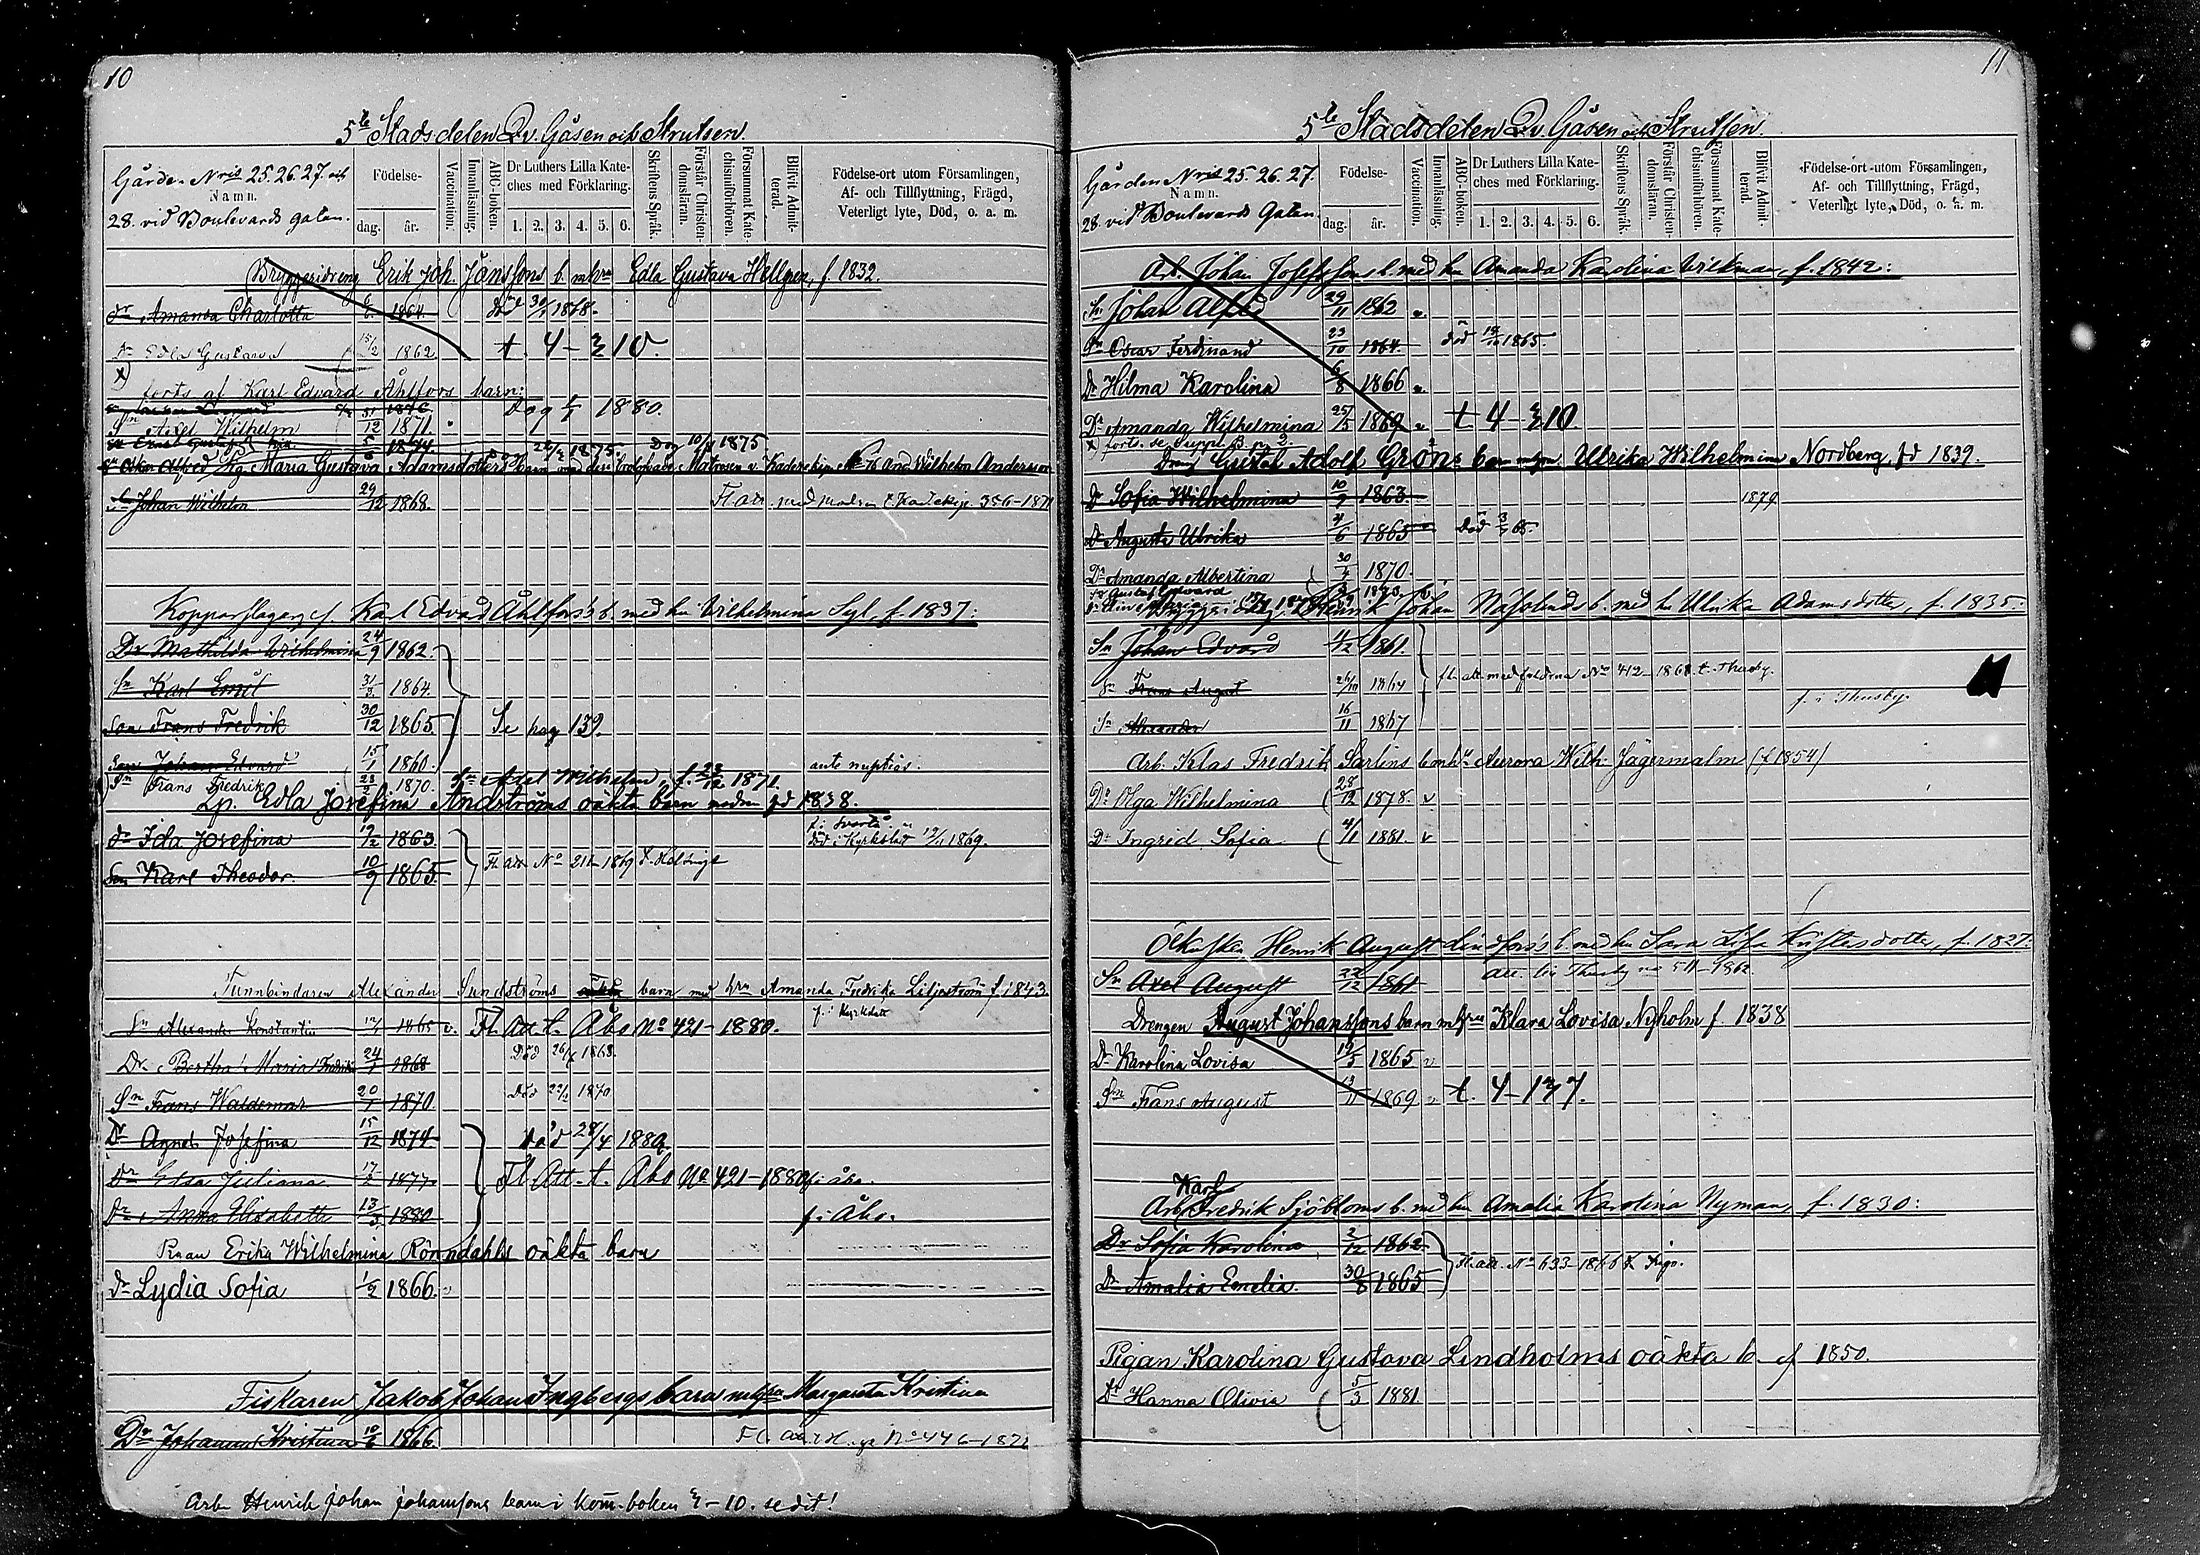 10
5te Stadsdelen Qv. Gåsen och Strutsen.
Gården Nris 25. 26. 27. och
Namn.
28. vid Boulevards gatan.
Födelse-
dag. år.
Vaccination.
Innanläsning.
ABC-boken.
Dr Luthers Lilla Kate-
ches med Förklaring.
1. 2. 3. 4. 5. 6.
Skriftens Språk.
Förstår Christen-
domsläran.
Försummat Kate-
chismiförhören.
Blifvit Admit-
terad.
Födelse-ort utom Församlingen,
Af- och Tillflyttning, Frägd,
Veterligt lyte, Död, o. a. m.
Erik Joh. Janssons b. m hru Edla Gustava Hellgren, f. 1832.
dr Amanda Charlotta 1864. Död 1868.
dr Edla Gustava 15/2 1862 t. 4 - 310.
forts af Karl Edvard Åhlfors barn:
1880.
Sn Axel Wilhelm /12 1871.
1875. Dog 10/4 1875
Maria Gustava Adamsdotters barn Wilhelm Andersson
Sn Johan Wilhelm 29/12 1868. 356-1871
Kopparslagarges. Karl Edvard Åhlfors's b. med hu Wilhelmina Syl, f. 1837:
Dr Mathilda Wilhelmina 24/9 1862.
Sn Karl Emil 31/3 1864.
Son Frans Fredrik 30/12 1865 Se pag 139.
Son Johan Edvard 15/1 1860. ante nuptias.
Sn Frans Fredrik 23/2 1870. Sn Axel Wilhelm, f. 23/12 1871.
Lp. Edla Josefina Andströms oäkta barn modren fd 1838.
dr Ida Josefina 19/2 1863. f. i Svartå
död i Kyrkslätt 19/11 1869.
Son Karl Theodor. 10/9 1865 Fl. att. No 211-1869 t. Helsinge
Tunnbindaren Alexander Sundströms barn med hru Amanda Fredrika Liljeström f. 1843.
Sn Alexander Konstantin 1865 v. Fl. Att t. Åbo No 421-1880. f. i Kyrkslätt
Dr Bertha Maria Fredrika 24/1 1868 Död 1868.
Sn Frans Waldemar 20/1 1870. Död 1870
Dr Agnes Josefina 15/12 1874 Död 28/4 1880
Dr Elsa Juliana 17/2 1877 Fl. Att. t. Åbo No 421-1880 f. i Åbo.
Dr Anna Elisabeth 13/3 1880 f. i Åbo.
Erika Wilhelmina Rönndahls oäkta barn
Dr Lydia Sofia 1/2 1866.
Fiskaren Jakob Johan Ingbergs barn m hfru Margareta Kristina
Dr Johanna Kristina 10/6 1866. No 446-187
Arb. Henrik Johan Johanssons barn i kom. boken 4-10. se dit!
11
5te Stadsdelen Qv. Gåsen och Strutsen.
Gården Nris 25. 26. 27.
Namn.
28. vid Boulevards Gatan
Födelse-
dag. år.
Vaccination.
Innanläsning.
ABC-boken.
Dr Luthers Lilla Kate-
ches med Förklaring.
1. 2. 3. 4. 5. 6.
Skriftens Språk.
Förstår Christen-
domsläran.
Försummat Kate-
chismiförhören.
Blifvit Admit-
terad.
Födelse-ort utom Församlingen,
Af- och Tillflyttning, Frägd,
Veterligt lyte, Död, o. a. m.
Arb. Johan Josefssons b. med hu Amanda Karolina Wikman, f. 1842:
Sn Johan Alfred 29/11 1862
Sn Oscar Ferdinand 23/10 1864. död 1865.
Dr Hilma Karolina 6/8 1866
Dr Amanda Wilhelmina 25/5 1869 t 4 - 310
forts. se Suppl. B. p. 2.
Dreng Gustaf Adolf Gröns barn m hfru Ulrika Wilhelmina Nordberg, fd 1839.
Dr Sofia Wilhelmina 10/9 1863. 1879
Dr Augusta Ulrika 4/6 1865 Död 65.
Dr Amanda Albertina 30/4 1870.
Sn Gustaf Edvard 1873.
Henrik Johan Näslunds b. med hu Ulrika Adamsdotter, f. 1835.
Sn Johan Edvard 4/2 1861.
Sn Frans August 26/10 1864 fl. att. med föräldrarna No 412-1868 t. Thusby.
f. i Thusby
Sn Alexander 16/11 1867
Arb. Klas Fredrik Sarlins b m hu Aurora Wilh. Jägermalm (f 1854)
Dr Olga Wilhelmina 28/12 1878. v
Dr Ingrid Sofia 4/11 1881. v
Henrik August Lindfors's b. med hu Sara Lisa Kristersdotter, f. 1827.
Sn Axel August 22/12 1861 att. till Thusby no 511-1862
Drengen August Johanssons barn m hfru Klara Lovisa Nyholm f. 1838
Dr Karolina Lovisa 19/3 1865 v
Sn Frans August 13/11 1869 v t. 4-137.
Karl
Arb. Fredrik Sjöbloms b. med hu Amalia Karolina Nyman, f. 1830:
Dr Sofia Karolina 2/12 1862
Dr Amalia Emelia. 30/8 1865 Fl. att. No 633-1866 t.
Pigan Karolina Gustava Lindholms oäkta b. f 1850.
Dr Hanna Olivia 5/3 1881.